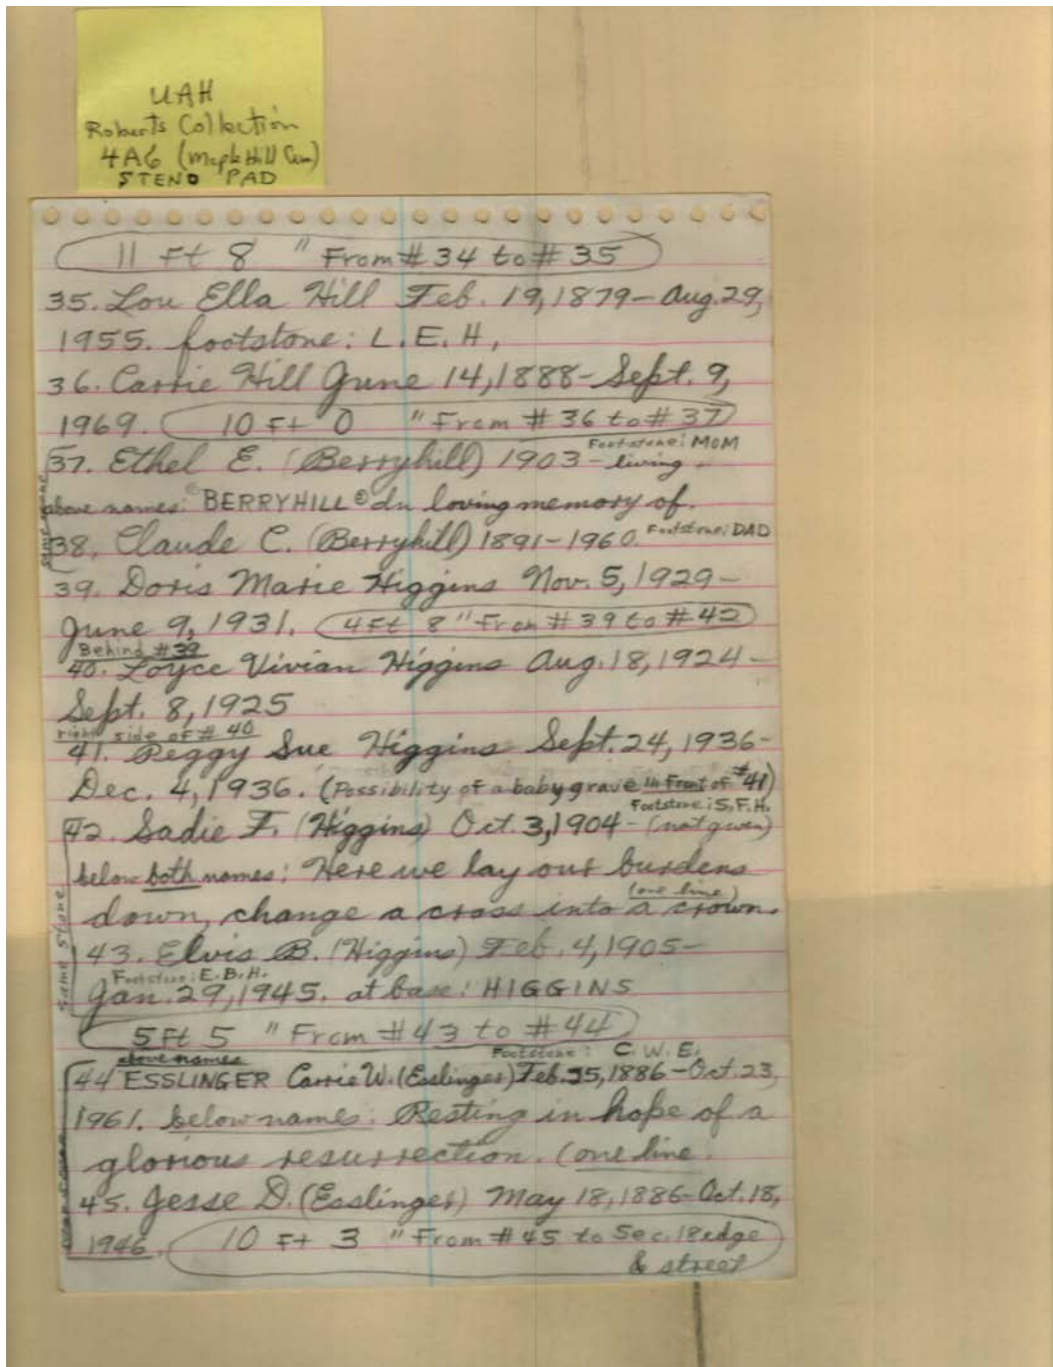 UAH
Roberts Collection
4A6 (Maple Hill Cem)
STENO PAD
11 Ft 8 " From # 34 to # 35
35. Lou Ella Hill Feb. 19, 1879 - Aug. 29,
1955. footstone: L.E.H.
36. Carrie Hill June 14, 1888 - Sept. 9,
1969. 10 Ft 0 " From # 36 to # 37
Footstone: MOM
37. Ethel E. (Berryhill) 1903 - living
same stone
above names: BERRYHILL In loving memory of.
38. Claude C. (Berryhill) 1891-1960. Footstone: DAD
39. Doris Marie Higgins Nov. 5, 1929 -
June 9, 1931. 4 Ft 8 " From # 39 to # 42
Behind # 39
40. Loyce Vivian Higgins Aug. 18, 1924 -
Sept. 8, 1925
right side of # 40
41. Peggy Sue Higgins Sept. 24, 1936 -
Dec. 4, 1936. (Possibility of a baby grave in front of #41)
Footstone: S.F.H.
42. Sadie F. (Higgins) Oct. 3, 1904 - (not given)
below both names: Here we lay our burdens
(one line)
down, change a cross into a crown.
same stone
43. Elvis B. (Higgins) Feb. 4, 1905 -
Footstone: E.B.H.
Jan. 29, 1945. at base: HIGGINS
5 Ft 5 " From # 43 to # 44
above names Footstone: C.W.E.
44 ESSLINGER Carrie W. (Esslinger) Feb. 25, 1886 - Oct. 23,
1961. below names: Resting in hope of a
glorious resurrection. (one line.
same stone
45. Jesse D. (Esslinger) May 18, 1886 - Oct. 18,
1946. 10 Ft 3 " From # 45 to Sec. 18 edge
& street